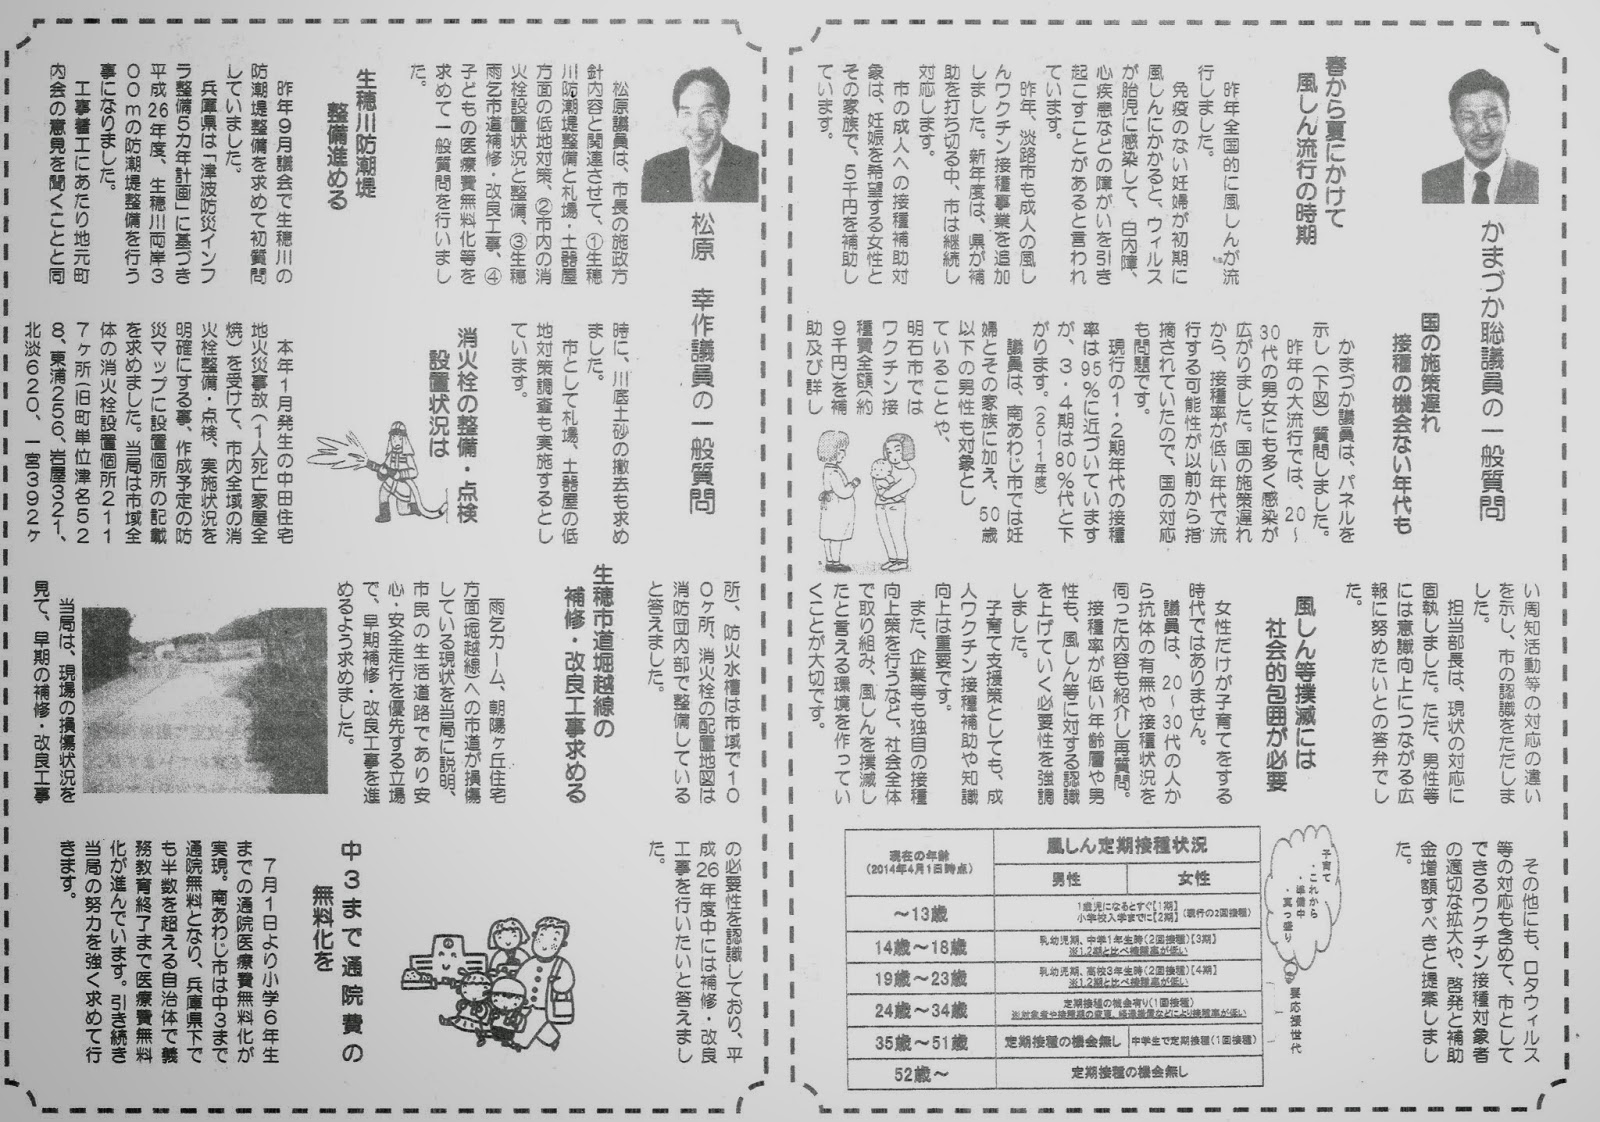 かまづか聡議員の一般質問
春から夏にかけて
風しん流行の時期
昨年全国的に風しんが流
行しました。
免疫のない妊婦が初期に
風しんにかかると、ウィルス
が胎児に感染して、白内障、
心疾患などの障がいを引き
起こすことがあると言われ
ています。
昨年、淡路市も成人の風し
んワクチン接種事業を追加
しました。新年度は、県が補
助を打ち切る中、市は継続し
対応します。
市の成人への接種補助対
象は、妊娠を希望する女性と
その家族で、5千円を補助し
ています。
国の施策遅れ
接種の機会ない年代も
かまづか議員は、パネルを
示し(下図)質問しました。
昨年の大流行では、20〜
30代の男女にも多く感染が
広がりました。国の施策遅れ
から、接種率が低い年代で流
行する可能性が以前から指
摘されていたので、国の対応
も問題です。
現行の1・2期年代の接種
率は95%に近づいています
が、3・4期は80%代と下
がります。(2011年度)
議員は、南あわじ市では妊
婦とその家族に加え、50歳
以下の男性も対象とし
ていることや、
明石市では
ワクチン接
種費全額(約
9千円)を補
助及び詳し
い周知活動等の対応の違い
を示し、市の認識をただしま
した。
担当部長は、現状の対応に
固執しました。ただ、男性等
には意識向上につながる広
報に努めたいとの答弁でし
た。
風しん等撲滅には
社会的包囲が必要
女性だけが子育てをする
時代ではありません。
議員は、20〜30代の人か
ら抗体の有無や接種状況を
伺った内容も紹介し再質問。
接種率が低い年齢層や男
性も、風しん等に対する認識
を上げていく必要性を強調
しました。
子育て支援策としても、成
人ワクチン接種補助や知識
向上は重要です。
また、企業等も独自の接種
向上策を行うなど、社会全体
で取り組み、風しんを撲滅し
たと言える環境を作ってい
くことが大切です。
その他にも、ロタウィルス
等の対応も含めて、市として
できるワクチン接種対象者
の適切な拡大や、啓発と補助
金増額すべきと提案しまし
た。
子育て、
・これから
・準備中
・真っ盛り
要応援世代
現在の年齢
(2014年4月1日時点)
風しん定期接種状況
男性
女性
〜13歳
1歳児になるとすぐ【1期】
小学校入学までに【2期】
(現行の2回接種)
14歳〜18歳
乳幼児期、中学1年生時(2回接種)【3期】
※1.2期と比べ接種率が低い
19歳〜23歳
乳幼児期、高校3年生時(2回接種)【4期】
※1.2期と比べ接種率が低い
24歳〜34歳
定期接種の機会有り(1回接種)
※対象者や接種期の変更、経過措置などにより接種率が低い
35歳〜51歳
定期接種の機会無し
中学生で定期接種(1回接種)
52歳〜
定期接種の機会無し
松原 幸作議員の一般質問
松原議員は、市長の施政方
針内容と関連させて、①生穂
川防潮堤整備と札場・土器屋
方面の低地対策、②市内の消
火栓設置状況と整備、③生穂
雨乞市道補修・改良工事、④
子どもの医療費無料化等を
求めて一般質問を行いまし
た。
生穂川防潮堤
整備進める
昨年9月議会で生穂川の
防潮堤整備を求めて初質問
していました。
兵庫県は「津波防災インフ
ラ整備5カ年計画」に基づき
平成26年度、生穂川両岸3
00mの防潮堤整備を行う
事になりました。
工事着工にあたり地元町
内会の意見を聞くことと同
時に、川底土砂の撤去も求め
ました。
市として札場、土器屋の低
地対策調査も実施するとし
ています。
消火栓の整備・点検
設置状況は
本年1月発生の中田住宅
地火災事故(1人死亡家屋全
焼)を受けて、市内全域の消
火栓整備・点検、実施状況を
明確にする事、作成予定の防
災マップに設置個所の記載
を求めました。当局は市域全
体の消火栓設置個所211
7ヶ所(旧町単位津名52
8、東浦256、岩屋321、
北淡620、一宮392ヶ
所)、防火水槽は市域で10
0ヶ所、消火栓の配置地図は
消防団内部で整備している
と答えました。
生穂市道堀越線の
補修・改良工事求める
雨乞カーム、朝陽ヶ丘住宅
方面(堀越線)への市道が損傷
している現状を当局に説明、
市民の生活道路であり安
心・安全走行を優先する立場
で、早期補修・改良工事を進
めるよう求めました。
当局は、現場の損傷状況を
見て、早期の補修・改良工事
の必要性を認識しており、平
成26年度中には補修・改良
工事を行いたいと答えまし
た。
中3まで通院費の
無料化を
7月1日より小学6年生
までの通院医療費無料化が
実現。南あわじ市は中3まで
通院無料となり、兵庫県下で
も半数を超える自治体で義
務教育終了まで医療費無料
化が進んでいます。引き続き
当局の努力を強く求めて行
きます。